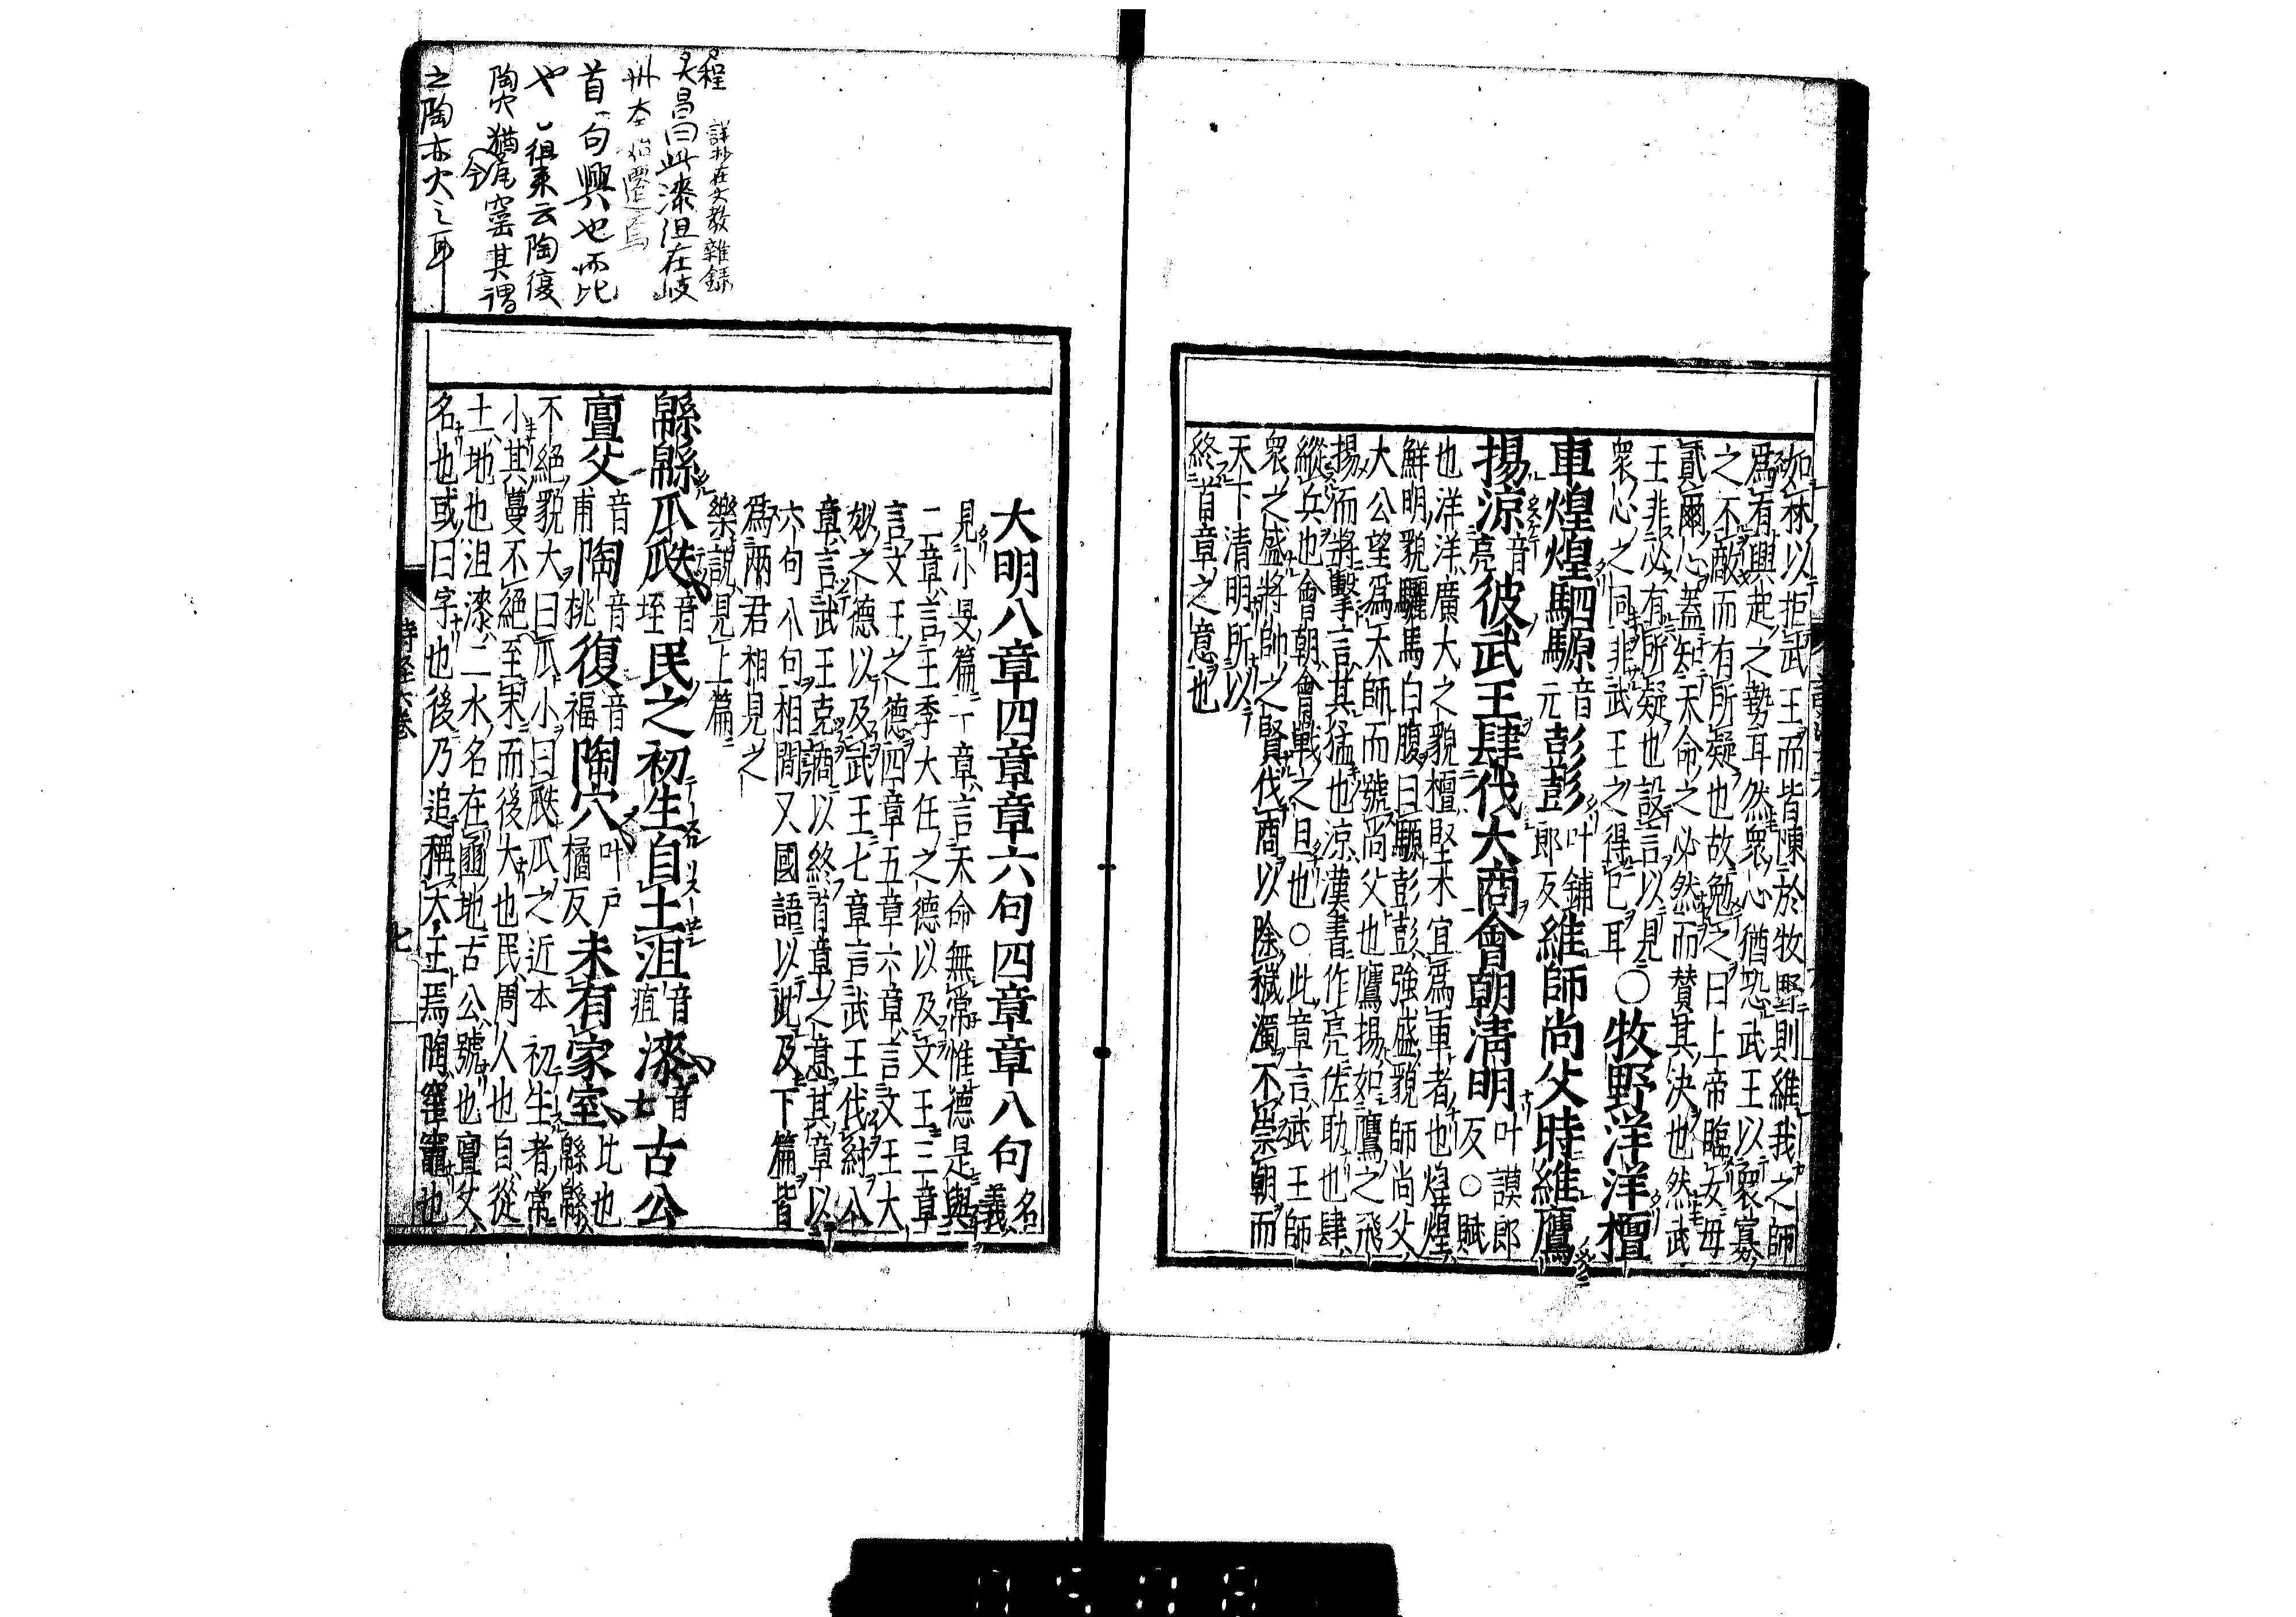 如林以拒武王而皆陳於牧野則維我之師
爲有興起之勢耳然衆心猶恐武王以衆寡
之不敵而有所疑也故勉之曰上帝臨女毋
貳爾心蓋知天命之必然而贊其決也然武
王非必有所疑也設言以見
衆心之同非武王之得已耳○牧野洋洋檀
車煌煌駟騵音元彭彭叶鋪郎反維師尚父時維鷹
揚涼音亮彼武王肆伐大商會朝清明叶謨郎反○賦
也洋洋廣大之貌檀堅木宜爲車者也煌煌
鮮明貌駵馬白腹曰騵彭彭強盛貌師尚父
大公望爲大師而號尚父也鷹揚如鷹之飛
揚而將擊言其猛也涼漢書作亮佐助也肆
縱兵也會朝會戰之旦也○此章言武王師
衆之盛將帥之賢伐商以除穢濁不崇朝而
天下清明所以
終首章之意也
大明八章四章章六句四章章八句名義
見小旻篇一章言天命無常惟德是與
二章言王季大任之德以及文王三章
言文王之德四章五章六章言文王大
姒之德以及武王七章言武王伐紂八
章言武王克商以終首章之意其章以
六句八句相間又國語以此及下篇皆
爲兩君相見之
樂說見上篇
緜緜瓜瓞音垤民之初生自土沮音疽漆音七古公
亶父音甫陶音桃復音福陶穴叶戶橘反未有家室比也緜緜
不絕貌大曰瓜小曰瓞瓜之近本初生者常
小其蔓不絕至末而後大也民周人也自從
土地也沮漆二水名在豳地古公號也亶父
名也或曰字也後乃追稱大王焉陶窰竈也
詩經六卷
七
程
大昌曰此漆沮在岐
詳抄在文教雜録
首句興也而比
也徂來云陶復
陶穴猶今尾窰其謂
之陶亦大之耳